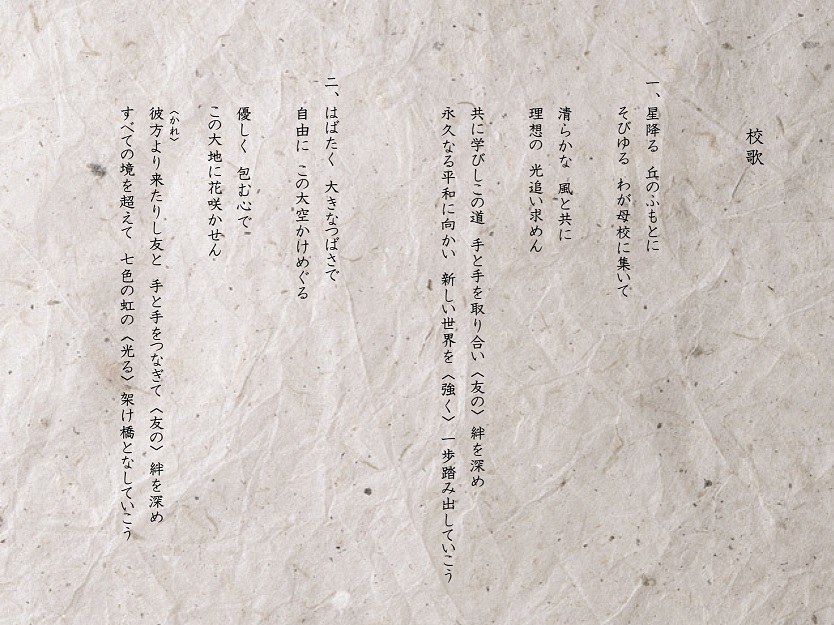 校歌
一、星降る　丘のふもとに
そびゆる　わが母校に集いて
清らかな　風と共に
理想の　光追い求めん
共に学びしこの道　手と手を取り合い〈友の〉絆を深め
永久なる平和に向かい　新しい世界を〈強く〉一歩踏み出していこう
二、はばたく　大きなつばさで
自由に　この大空かけめぐる
優しく　包む心で
この大地に花咲かせん
〈かれ〉
彼方より来たりし友と　手と手をつなぎて〈友の〉絆を深め
すべての境を超えて　七色の虹の〈光る〉架け橋となしていこう